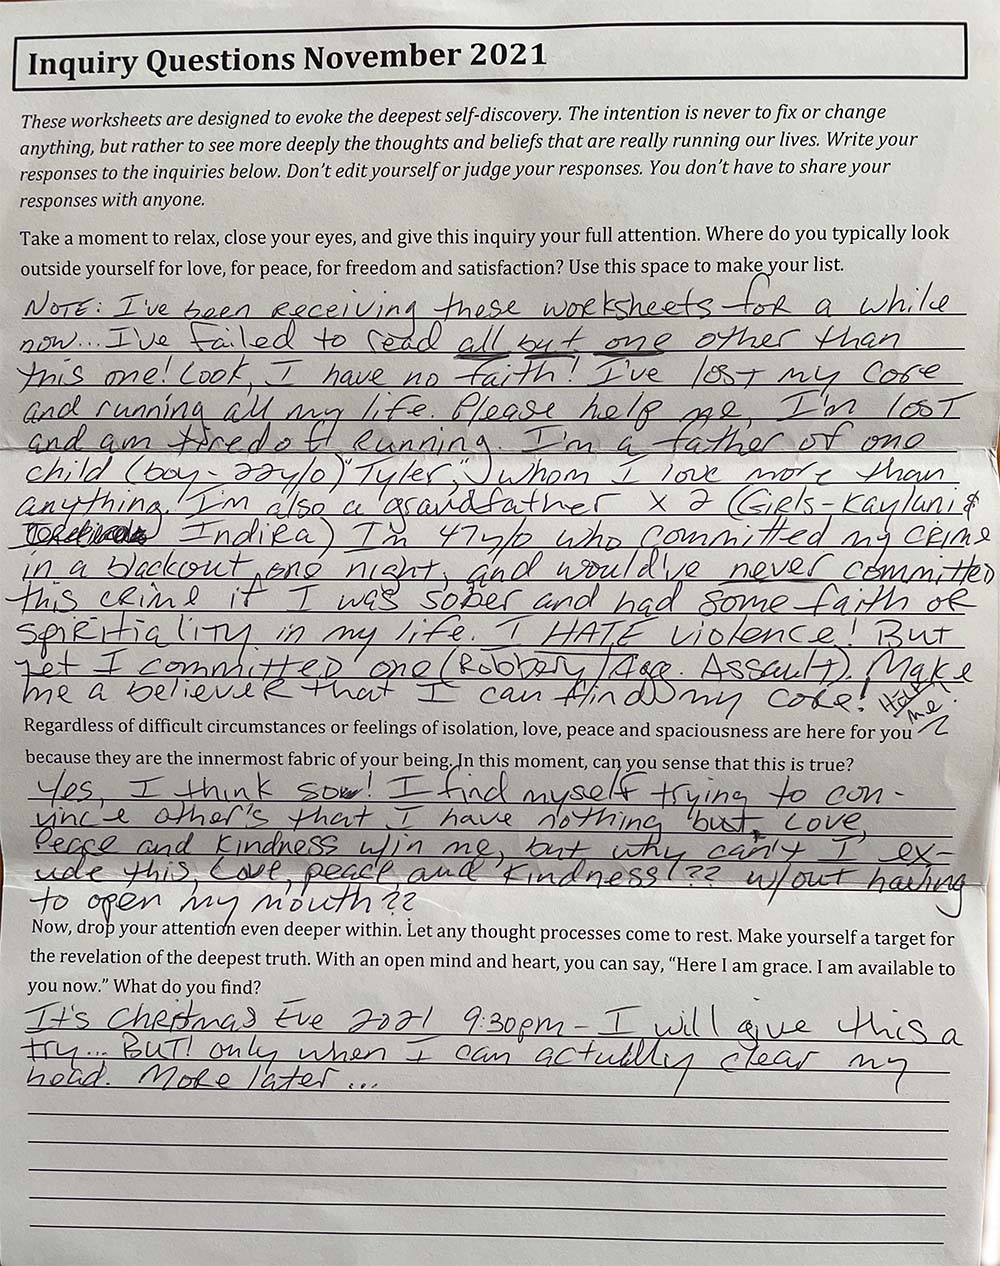 Inquiry Questions November 2021
These worksheets are designed to evoke the deepest self-discovery. The intention is never to fix or change
anything, but rather to see more deeply the thoughts and beliefs that are really running our lives. Write your
responses to the inquiries below. Don't edit yourself or judge your responses. You don't have to share your
responses with anyone.
Take a moment to relax, close your eyes, and give this inquiry your full attention. Where do you typically look
outside yourself for love, for peace, for freedom and satisfaction? Use this space to make your list.
NOTE: I've been receiving these worksheets for a while
now... I've failed to read all but one other than
this one! Look, I have no faith! I've lost my core
and running all my life. Please help me, I'm lost
and am tired of running. I'm a father of one
child (boy - 22y/o) "Tyler", whom I love more than
anything. I'm also a grandfather x 2 (Girls - Kaylani &
Indira) I'm 47y/o who committed my crime
in a blackout, one night, and would've never committed
this crime if I was sober and had some faith or
spiritiality in my life. I HATE violence! But
yet I committed one (Robbery/Agg. Assault). Make
me a believer that I can find my core! Help me!
Regardless of difficult circumstances or feelings of isolation, love, peace and spaciousness are here for you
because they are the innermost fabric of your being. In this moment, can you sense that this is true?
Yes, I think so! I find myself trying to con-
vince other's that I have nothing but, Love,
Peace and Kindness w/in me, but why can't I ex-
ude this, Love, peace and kindness!?? w/out having
to open my mouth??
Now, drop your attention even deeper within. Let any thought processes come to rest. Make yourself a target for
the revelation of the deepest truth. With an open mind and heart, you can say, "Here I am grace. I am available to
you now." What do you find?
It's Christmas Eve 2021 9:30pm - I will give this a
try... BUT! only when I can actually clear my
head. More later...